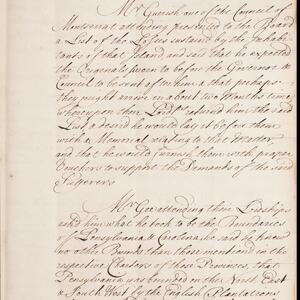 Mr Guerish one of the Council of
Montserrat attending presented to the Board
a List of the Losses sustained by the Inhabi-
tants of that Island, and said that he expected
the Originals sworn to before the Governor &
Council to be sent to him & that perhaps
they might arrive in about two Months time
whereupon their Lordps returned him the said
List & desired he would lay it before them
with a Memorial relating to that Matter,
and that he would furnish them with proper
Vouchers to support the Demands of the said
Sufferers.
Mr Gee attending their Lordships
ask'd him what he took to be the Boundaries
of Pensylvania & Carolina, he said he knew
no other Bounds than those mentioned in the
respective Charters of those Provinces, that
Pensylvania was bounded on the North East
& South West by the English Plantations